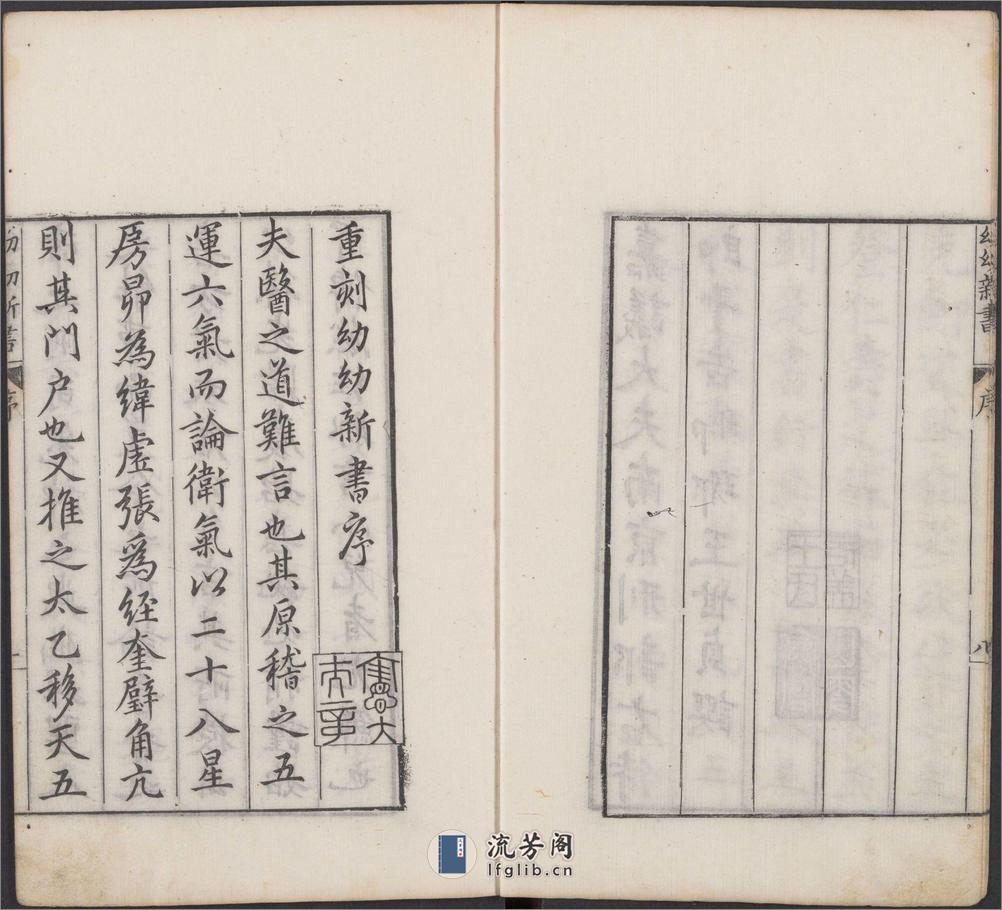 幼幼新書 序 八
重刻幼幼新書序
夫醫之道難言也其原稽之五
運六氣而論衛氣以二十八星
房昴為緯虛張爲經奎璧角亢
則其門户也又推之太乙移天五
幼幼新書 序 一
流芳阁
lfglib.cn